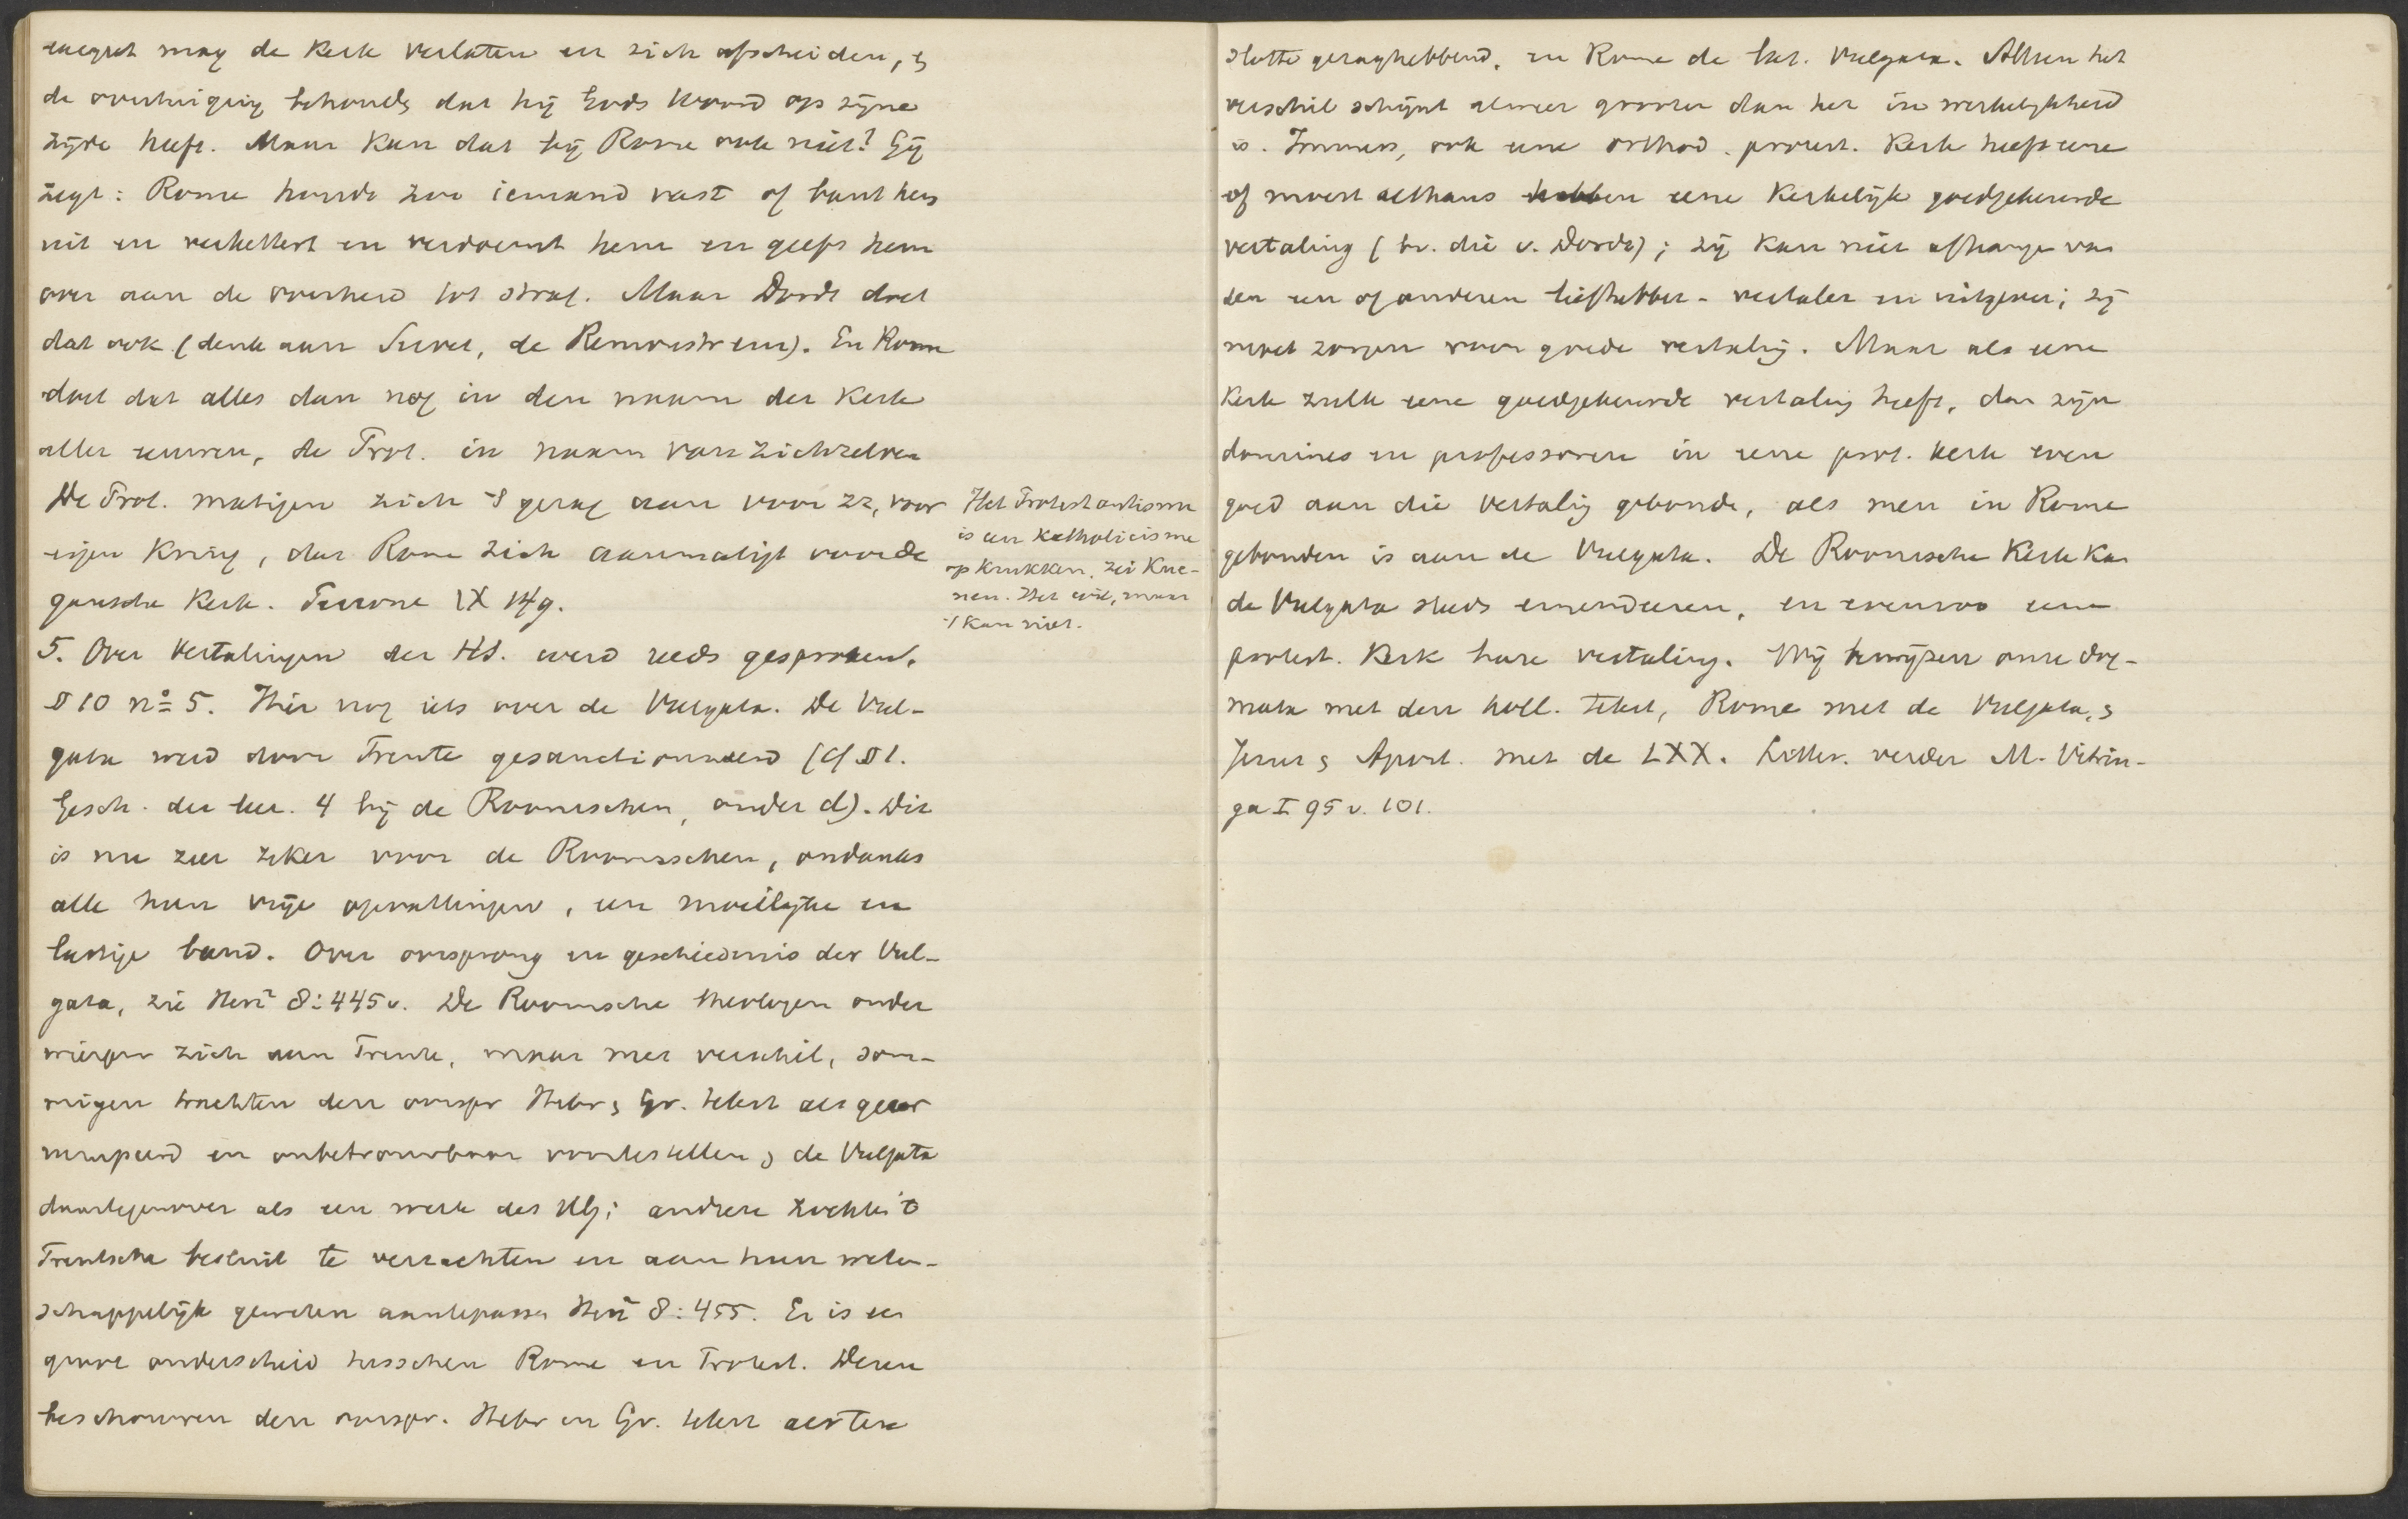 mag de Kerk verlaten en zich afscheiden, &
de overtuiging behoudg dat hij Gods Woord op zijne
zijde heeft. Maar kan dat bij Rome ook niet? Gij
zegt: Rome houdt zoo iemand vast of bant hem
uit en verkettert en verdoemt hem en geeft hem
over aan de overheid tot straf. Maar Dordt doet
dat ook (denk aan Servet, de Remonstranten). En Rome
doet dat alles dan nog in den naam der Kerk
aller eeuwen, de Prot. in naam van zichzelven
De Prot. matigen zich 't gezag aan voor zz, voor
eigen kring, dat Rome zich aanmatigt voor de
gansche Kerk. Perrone IX 149.
5. Over Vertalingen der HS. werd reeds gesproken,
§ 10 no 5. Hier nog iets over de Vulgata. De Vul-
gata werd door Trente gesanctionneerd (cf § 1.
Gesch. der leer. 4 bij de Roomschen, onder d). Dit
is nu zeer zeker voor de Roomschen, ondanks
alle hun vrije opvattingen, een moeilijke en
lastige band. Over oorsprong en geschiedenis der Vul-
gata, zie Herz² 8:445v. De Roomsche theologen onder
wierpen zich aan Trente, maar met verschil, som-
migen trachten den oorspr Hebr & Gr. tekst als gecor
rumpeerd en onbetrouwbaar voortestellen & de Vulgata
daartegenover als een werk des HG; andere zochten 't
Trentsche besluit te verzachten en aan hun weten-
schappelijk geweten aantepassen Herz² 8:455. Er is een
groot onderscheid tusschen Rome en Protest. Dezen
beschouwen den oorspr. Hebr en Gr. tekst als ten
Het Protestantisme
is een Katholicisme
op krukken, zei Kue-
nen. Het wil, maar
't kan niet.
slotte gezaghebbend, en Rome de lat. Vulgata. Alleen het
verschil schijnt alweer grooter dan het in werkelijkheid
is. Immers, ook eene orthod. protest. Kerk heeft eene
of moest althans hebben eene Kerkelijk goedgekeurde
vertaling (bv. die v. Dordt); zij kan niet afhangen van
den een of anderen liefhebber-vertaler en uitgever; zij
moet zorgen voor goede vertaling. Maar als eene
Kerk zulk eene goedgekeurde vertaling heeft, dan zijn
dominees en professoren in eene prot. kerk even
goed aan die vertaling gebonden, als men in Rome
gebonden is aan de Vulgata. De Roomsche Kerk kan
de Vulgata steeds emendeeren, en evenzoo eene
protest. Kerk hare vertaling. Wij bewijzen onze dog-
mata met den holl. tekst, Rome met de Vulgata, &
Jezus & Apost. met de LXX. Litter. verder M. Vitrin-
ga I 95 v. 101.